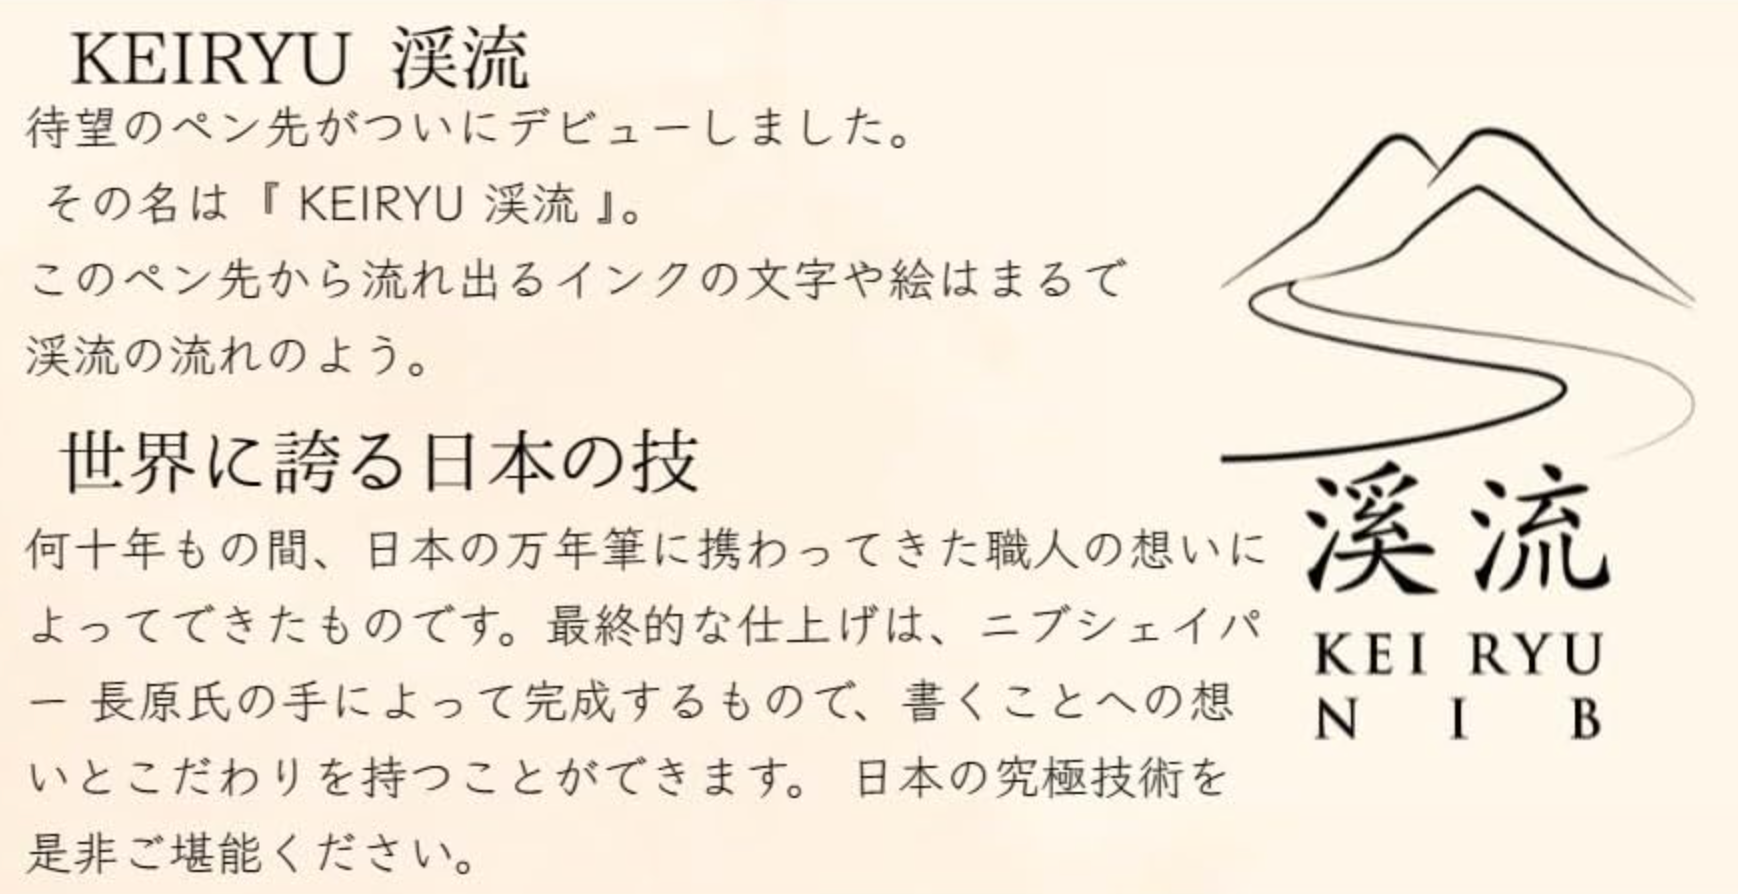 KEIRYU 渓流
待望のペン先がついにデビューしました。
その名は『 KEIRYU 渓流 』。
このペン先から流れ出るインクの文字や絵はまるで
渓流の流れのよう。
世界に誇る日本の技
何十年もの間、日本の万年筆に携わってきた職人の想いに
よってできたものです。最終的な仕上げは、ニブシェイパ
ー 長原氏の手によって完成するもので、書くことへの想
いとこだわりを持つことができます。 日本の究極技術を
是非ご堪能ください。
渓流
KEI RYU
N I B